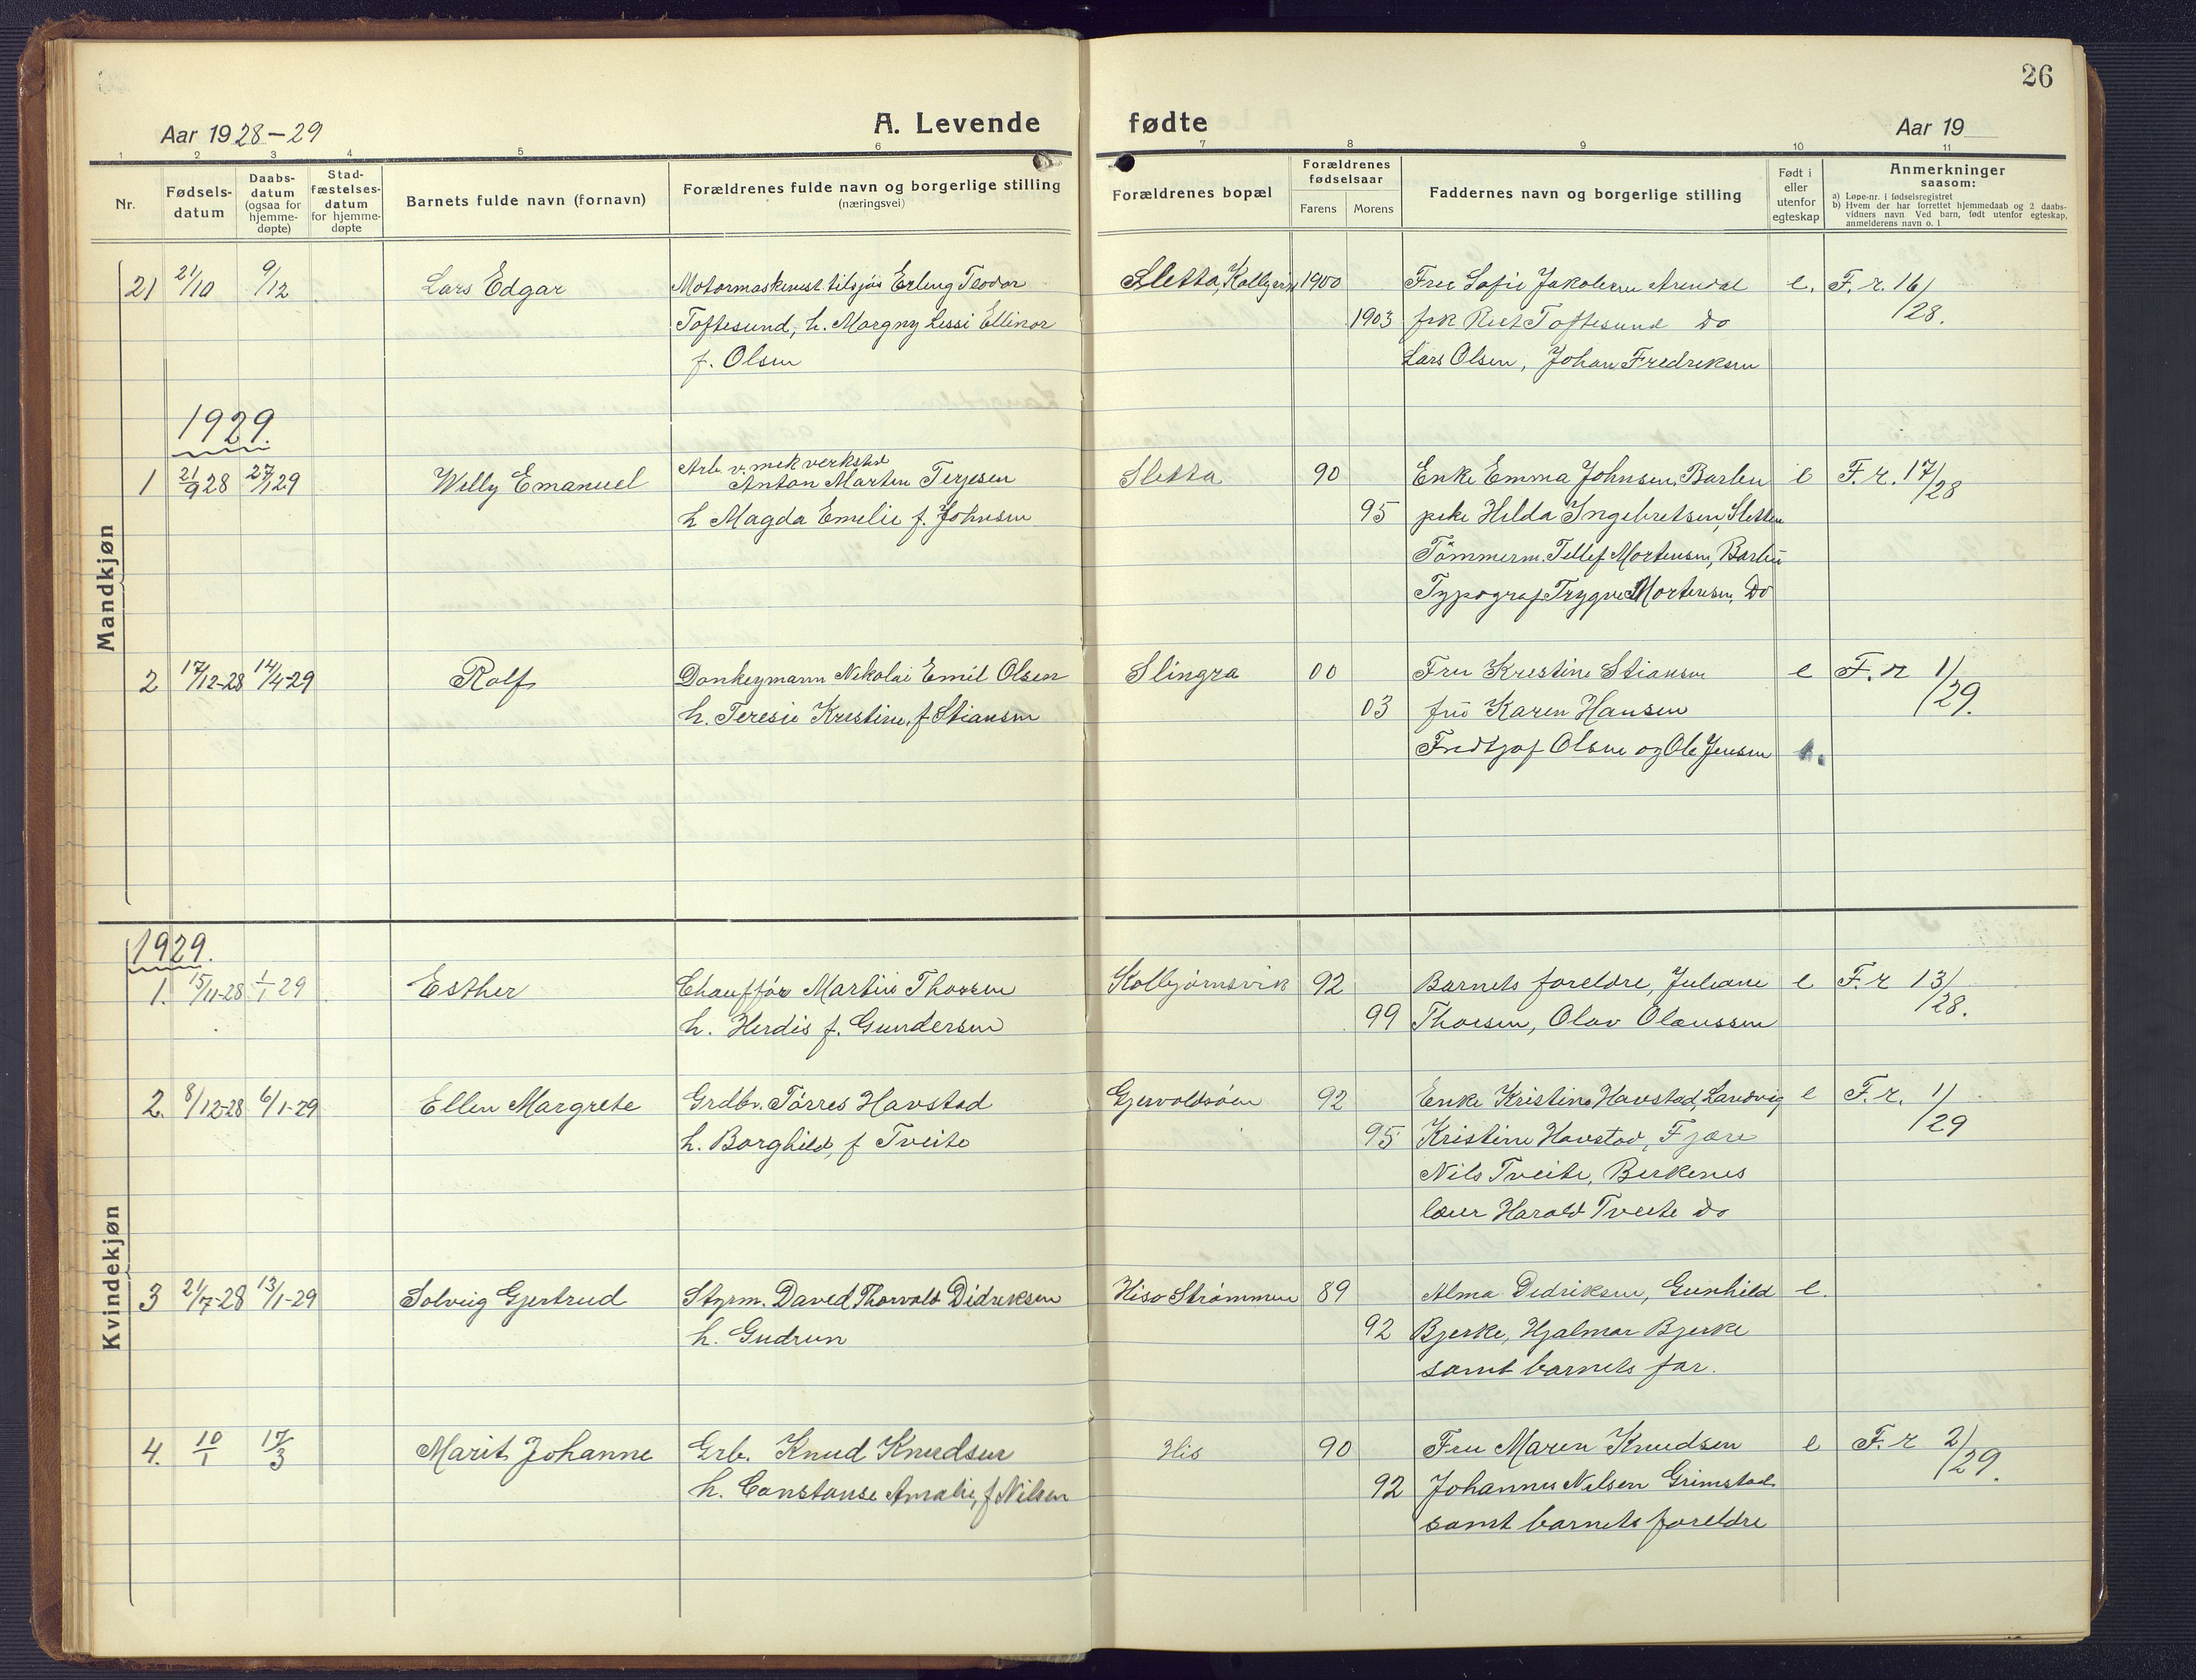 26
Aar 1928-29
A. Levende fødte
Aar 19
1 2 3 4 5 6 7 8 9 10 11
Nr.
Fødsels-
datum
Daabs-
datum
(ogsaa for
hjemme-
døpte)
Stad-
fæstelses-
datum
for hjemme-
døpte
Barnets fulde navn (fornavn)
Forældrenes fulde navn og borgerlige stilling
(næringsvei)
Forældrenes bopæl
Forældrenes
fødselsaar
Farens Morens
Faddernes navn og borgerlige stilling
Født i
eller
utenfor
egteskap
Anmerkninger
saasom:
a) Løpe-nr. i fødselsregistret
b) Hvem der har forrettet hjemmedaab og 2 daabs-
vidners navn. Ved barn, født utenfor egteskap,
anmelderens navn o. l
Mandkjøn
21 21/10 9/12 Lars Edgar Motormaskinist tilsjøs Erling Teodor Sletta, Kolbjørn 1900 Fru Sofie Jakobsen Arendal e. F. r. 16/
Toftesund, h. Margny Lessi Ellinor 1903 frk Rut Toftesund Do 28.
f. Olsen Lars Olsen, Johan Fredriksen
1929.
Arb. v. mek verksted
1 21/9 28 27/1 29 Willy Emanuel Anton Martin Terjesen Sletta 90 Enke Emma Johnsen, Barbu e F. r. 17/
h Magda Emelie f. Johnsen 95 pike Hilda Ingebretsen, Sletten 28
Tømmerm. Tellef Mortensen, Barbu
Typograf Trygve Mortensen, Do
2 17/12-28 14/4-29 Rolf Donkeymann Nikolai Emil Olsen Slingra 00 Fru Kristine Stiansen e F. r 1/
h. Teresie Kristine, f Stiansen 03 fru Karen Hansen 29.
Fredtjof Olsen og Ole Jensen
Kvindekjøn
1929.
1. 15/11-28 1/1 29 Esther Chauffør Martin Thorsen Kolbjørnsvik 92 Barnets foreldre, Juliane e F. r 13/
h. Herdis f. Gundersen 99 Thorsen, Olav Olaussen 28.
2. 8/12-28 6/1-29 Ellen Margrete Grdbr. Tørres Havstad Gjervoldsøen 92 Enke Kristine Havstad, Landvig e F. r. 1/
h. Borghild, f Tveite 95 Kristine Havstad, Fjære 29
Nils Tveite, Birkenes
lærer Harald Tveite do
3 21/7-28 13/1-29 Solveig Gjertrud Styrm. David Thorvald Didriksen Hisø Strømmen 89 Alma Didriksen, Gunhild e.
h. Gudrun 92 Bjerke, Hjalmar Bjerke
samt barnets far.
4. 10/1 17/3 Marit Johanne Grb. Knud Knudsen His 90 Fru Maren Knudsen e F. r 2/
h. Constanse Amalie, f Nilsen 92 Johannes Nilsen Grimstad 29.
samt barnets foreldre